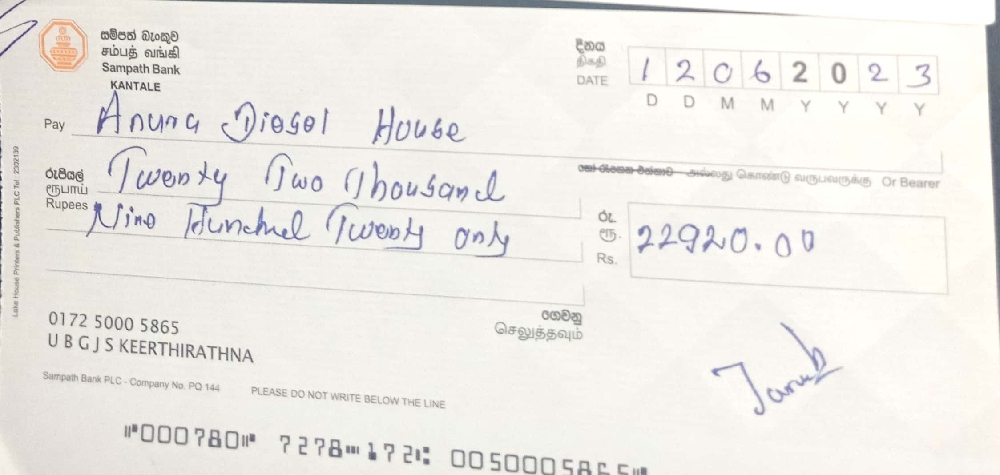 සම්පත් බැංකුව
சம்பத் வங்கி
Sampath Bank
KANTALE
දිනය
திகதி
DATE 1 2 0 6 2 0 2 3
D D M M Y Y Y Y
Pay Anura Diesel House
හෝ රැගෙන එන්නාට அல்லது கொண்டு வருபவருக்கு Or Bearer
රුපියල්
ரூபாய்
Rupees
Twenty Two Thousand
Nine Hundred Twenty only
රු.
ரூ.
Rs.
22920.00
ගෙවනු
செலுத்தவும்
0172 5000 5865
U B G J S KEERTHIRATHNA
Sampath Bank PLC - Company No. PQ 144
PLEASE DO NOT WRITE BELOW THE LINE
Lake House Printers & Publishers PLC Tel : 2302139
⑈000780⑈ 7278⑉172⑆ 0050005865⑈